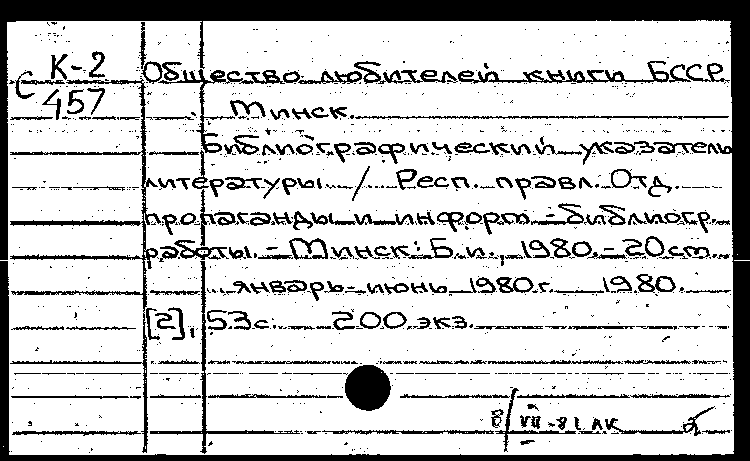 С К-2
457
Общество любителей книги БССР
Минск.
Библиографический указатель
литературы. / Респ. правл. Отд.
пропаганды и информ.-библиогр.
работы. - Минск: Б.и., 1980.-20см.
январь-июнь 1980г. 1980.
[2], 53с. 200 экз.
8/VII-81 АК